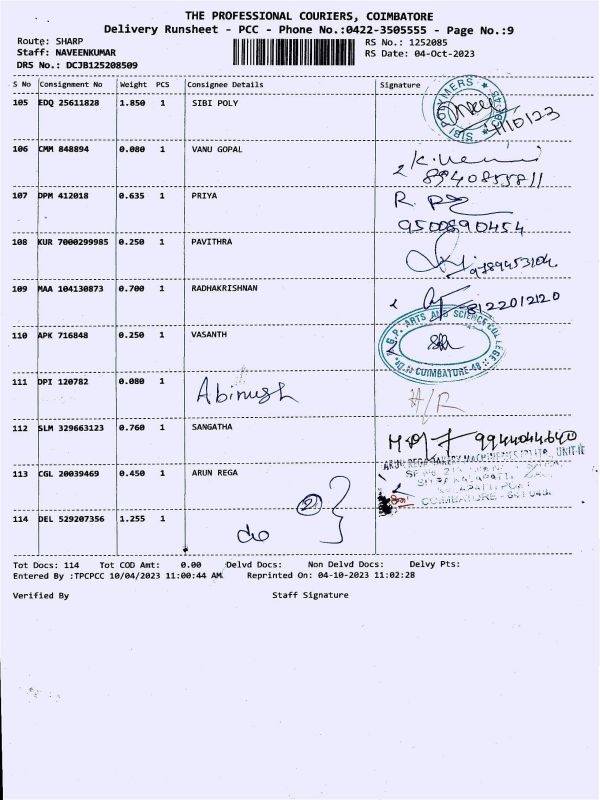 THE PROFESSIONAL COURIERS, COIMBATORE
Delivery Runsheet - PCC - Phone No.:0422-3505555 - Page No.:9
Route: SHARP
RS No.: 1252085
Staff: NAVEENKUMAR
RS Date: 04-Oct-2023
DRS No.: DCJB125208509
S No Consignment No Weight PCS Consignee Details Signature
105 EDQ 25611828 1.850 1 SIBI POLY
SIBI POLYMERS
4/10/23
106 CMM 848894 0.080 1 VANU GOPAL
8940855811
107 DPM 412018 0.635 1 PRIYA
R.
9500890454
108 KUR 7000299985 0.250 1 PAVITHRA
9789453104
109 MAA 104130873 0.700 1 RADHAKRISHNAN
8122012120
110 APK 716848 0.250 1 VASANTH
Dr. N.G.P. ARTS AND SCIENCE COLLEGE
COIMBATORE-48
111 DPI 120782 0.080 1 Abinush
H/R
112 SLM 329663123 0.760 1 SANGATHA
9944044640
113 CGL 20039469 0.450 1 ARUN REGA
ARUN REGA BAKERY MACHINERIES UNIT-II
COIMBATORE - 641 048.
21
114 DEL 529207356 1.255 1 do
Tot Docs: 114 Tot COD Amt: 0.00 Delvd Docs: Non Delvd Docs: Delvy Pts:
Entered By :TPCPCC 10/04/2023 11:00:44 AM Reprinted On: 04-10-2023 11:02:28
Verified By Staff Signature